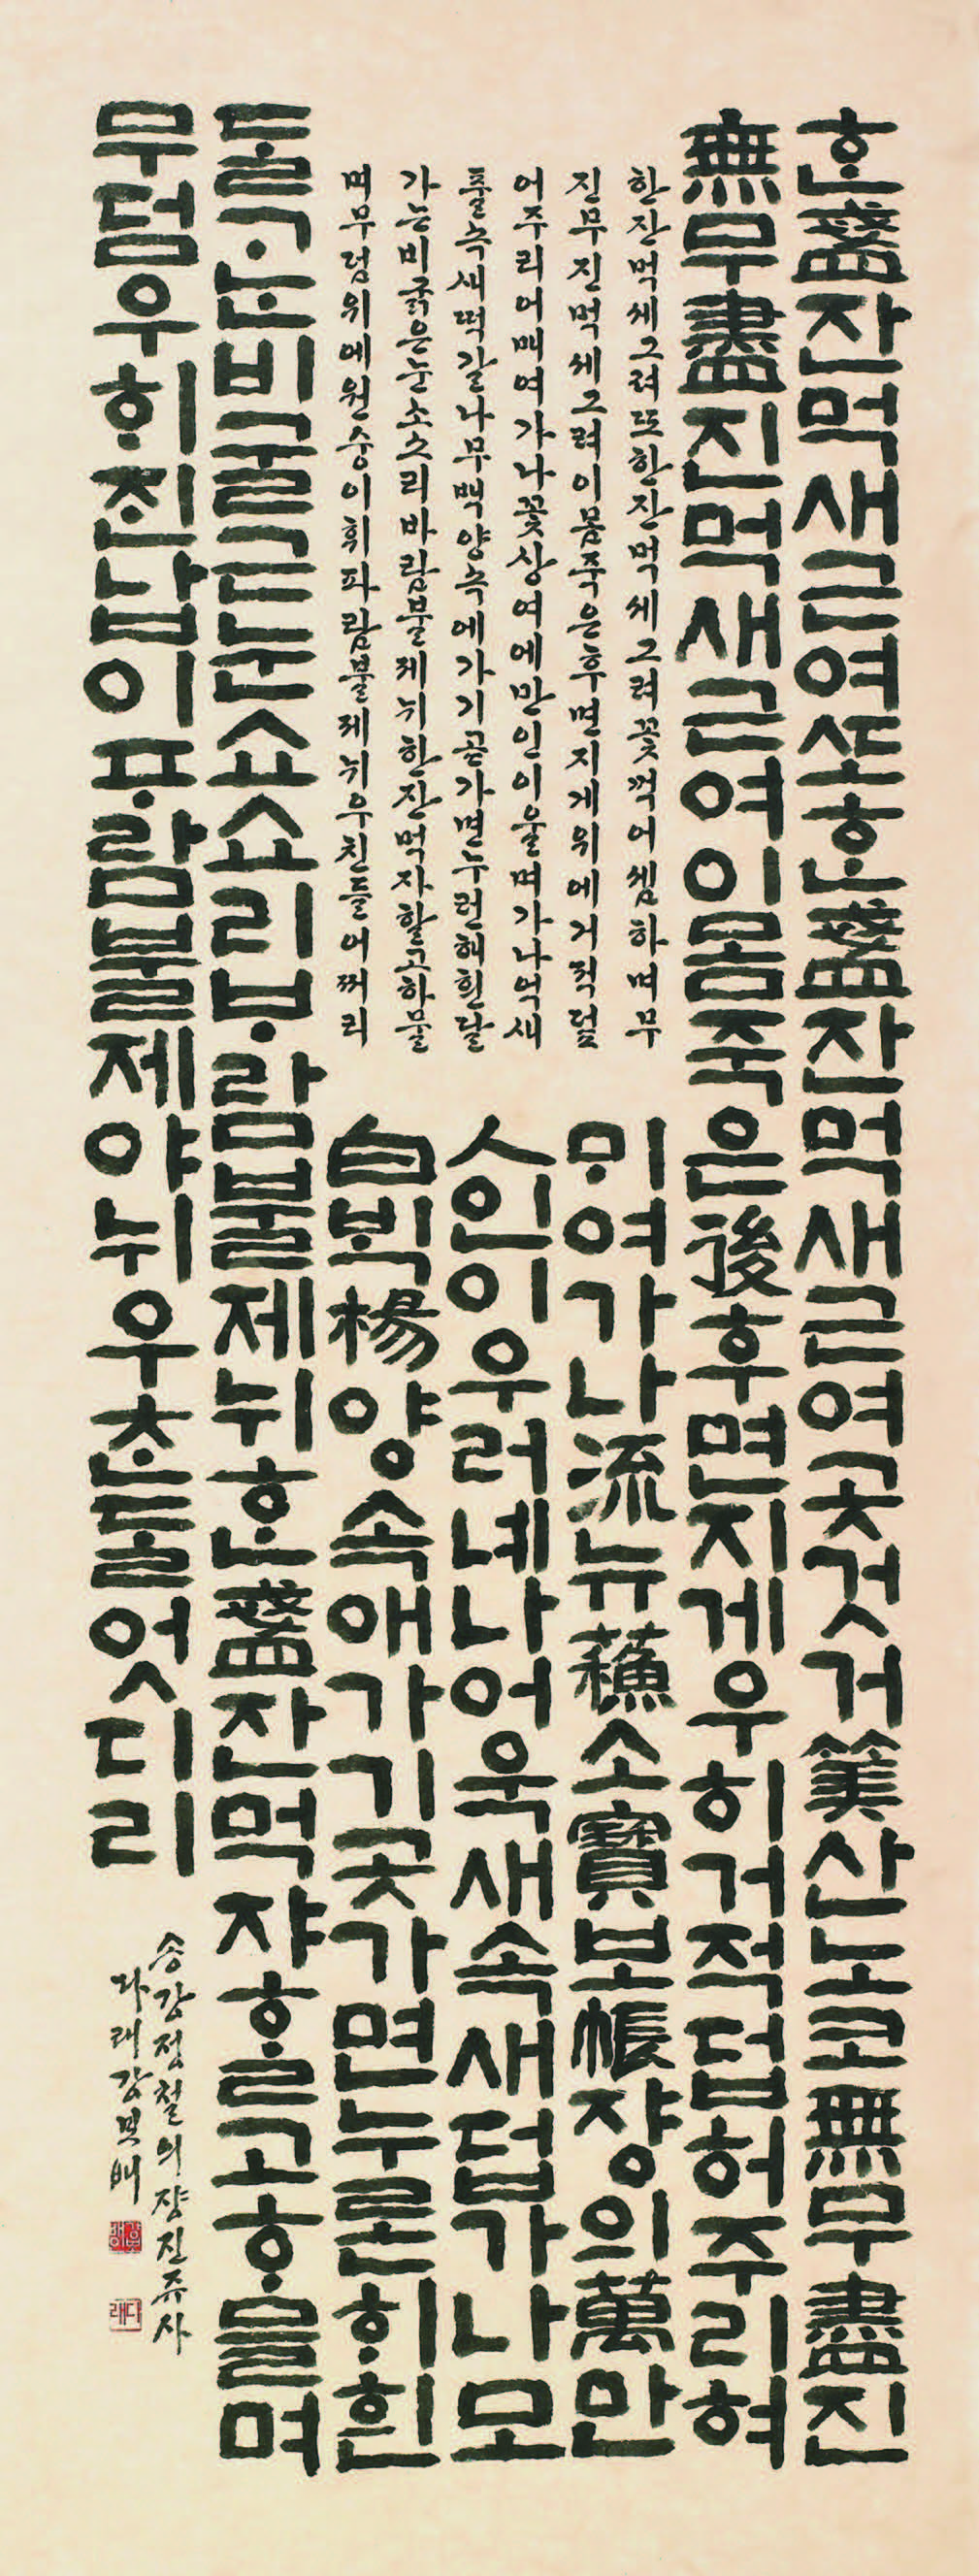 ᄒᆞᆫ盞잔먹새근여ᄯᅩᄒᆞᆫ盞잔먹새근여곳것거筭산노코無무盡진
無무盡진먹새근여이몸죽은後후면지게우히거적덥허주리혀
ᄆᆡ여가나流뉴蘓소寶보帳쟝의萬만
人인이우러녜나어욱새속새덥가나모
白ᄇᆡᆨ楊양속애가기곳가면누론ᄒᆡ흰
ᄃᆞᆯᄀᆞᄂᆞᆫ비굴근눈쇼쇼리ᄇᆞ람불제뉘ᄒᆞᆫ盞잔먹쟈ᄒᆞᆯ고ᄒᆞ믈며
무덤우ᄒᆡᄌᆡᆫ납이ᄑᆞ람불제야뉘우ᄎᆞᆫᄃᆞᆯ엇디리
한잔먹세그려또한잔먹세그려꽃꺽어셈하며무
진무진먹세그려이몸죽은후면지게위에거적덮
어주리어매여가나꽃상여에만인이울며가나억새
풀속새떡갈나무백양속에가기곧가면누런해흰달
가는비굵은눈소소리바람불제뉘한잔먹자할고하물
며무덤위에원숭이휘파람불제뉘우친들어찌리
송강정철의쟝진쥬사
다래강보배
다래